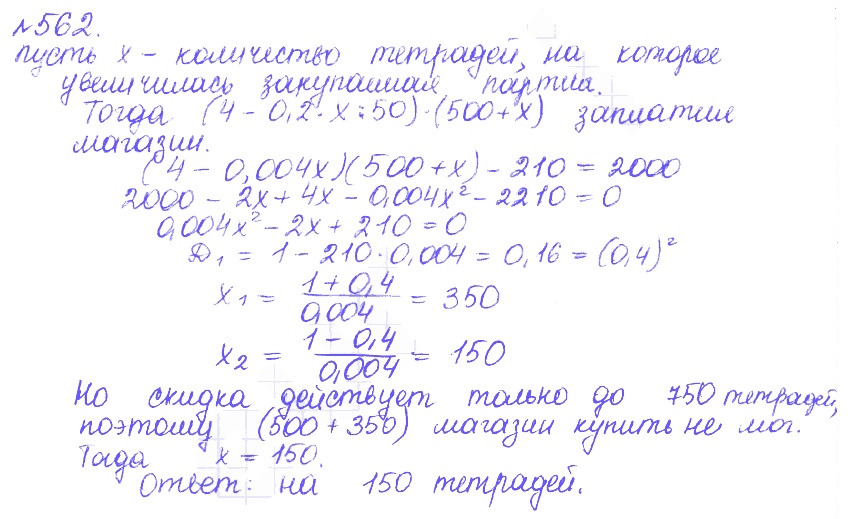 №562.
пусть x – количество тетрадей, на которое
увеличилась закупаемая партия.
Тогда (4 – 0,2 · x : 50) · (500 + x) заплатит
магазин.
(4 – 0,004x)(500 + x) – 210 = 2000
2000 – 2x + 4x – 0,004x² – 2210 = 0
0,004x² – 2x + 210 = 0
D₁ = 1 – 210 · 0,004 = 0,16 = (0,4)²
x₁ = (1 + 0,4)/0,004 = 350
x₂ = (1 – 0,4)/0,004 = 150
Но скидка действует только до 750 тетрадей,
поэтому (500 + 350) магазин купить не мог.
Тогда x = 150.
Ответ: на 150 тетрадей.